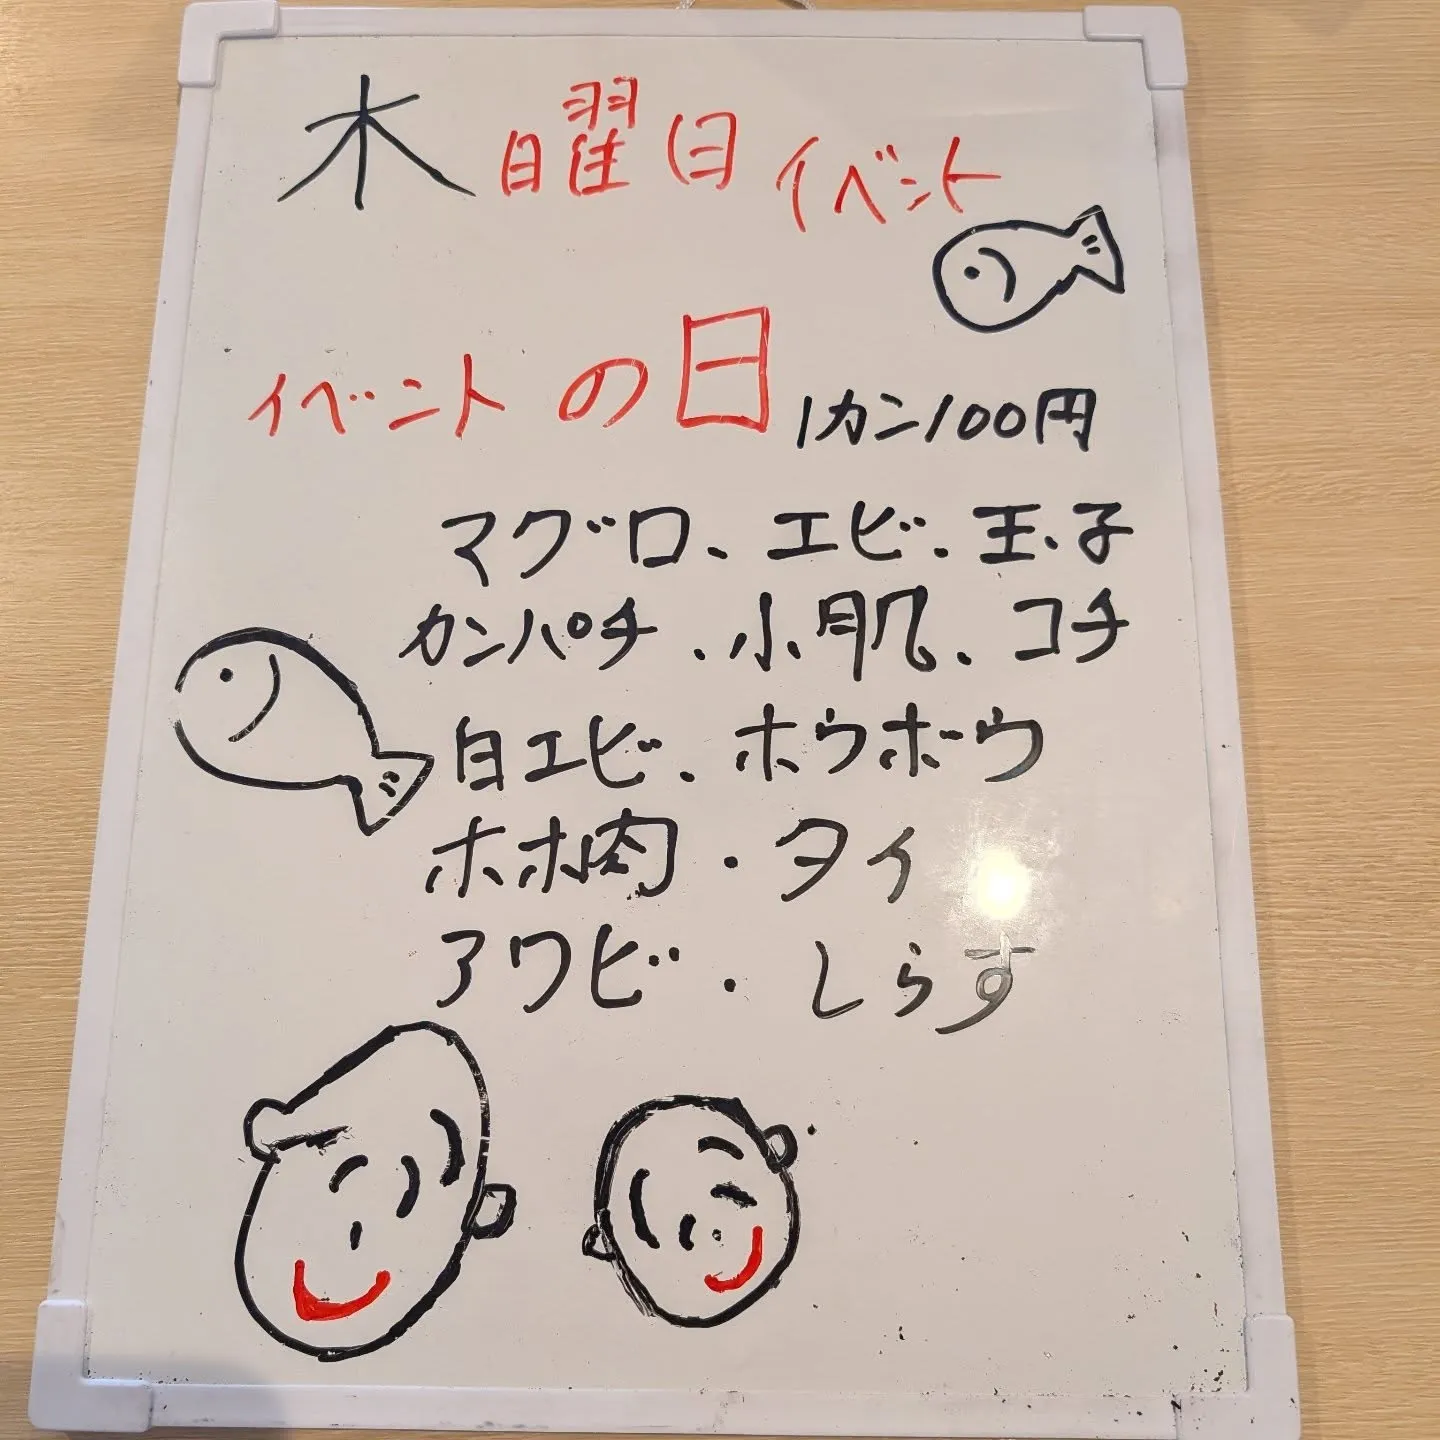 木曜日イベント
イベントの日 1カン100円
マグロ、エビ、玉子
カンパチ、小肌、コチ
白エビ、ホウボウ
ホホ肉・タイ
アワビ・しらす